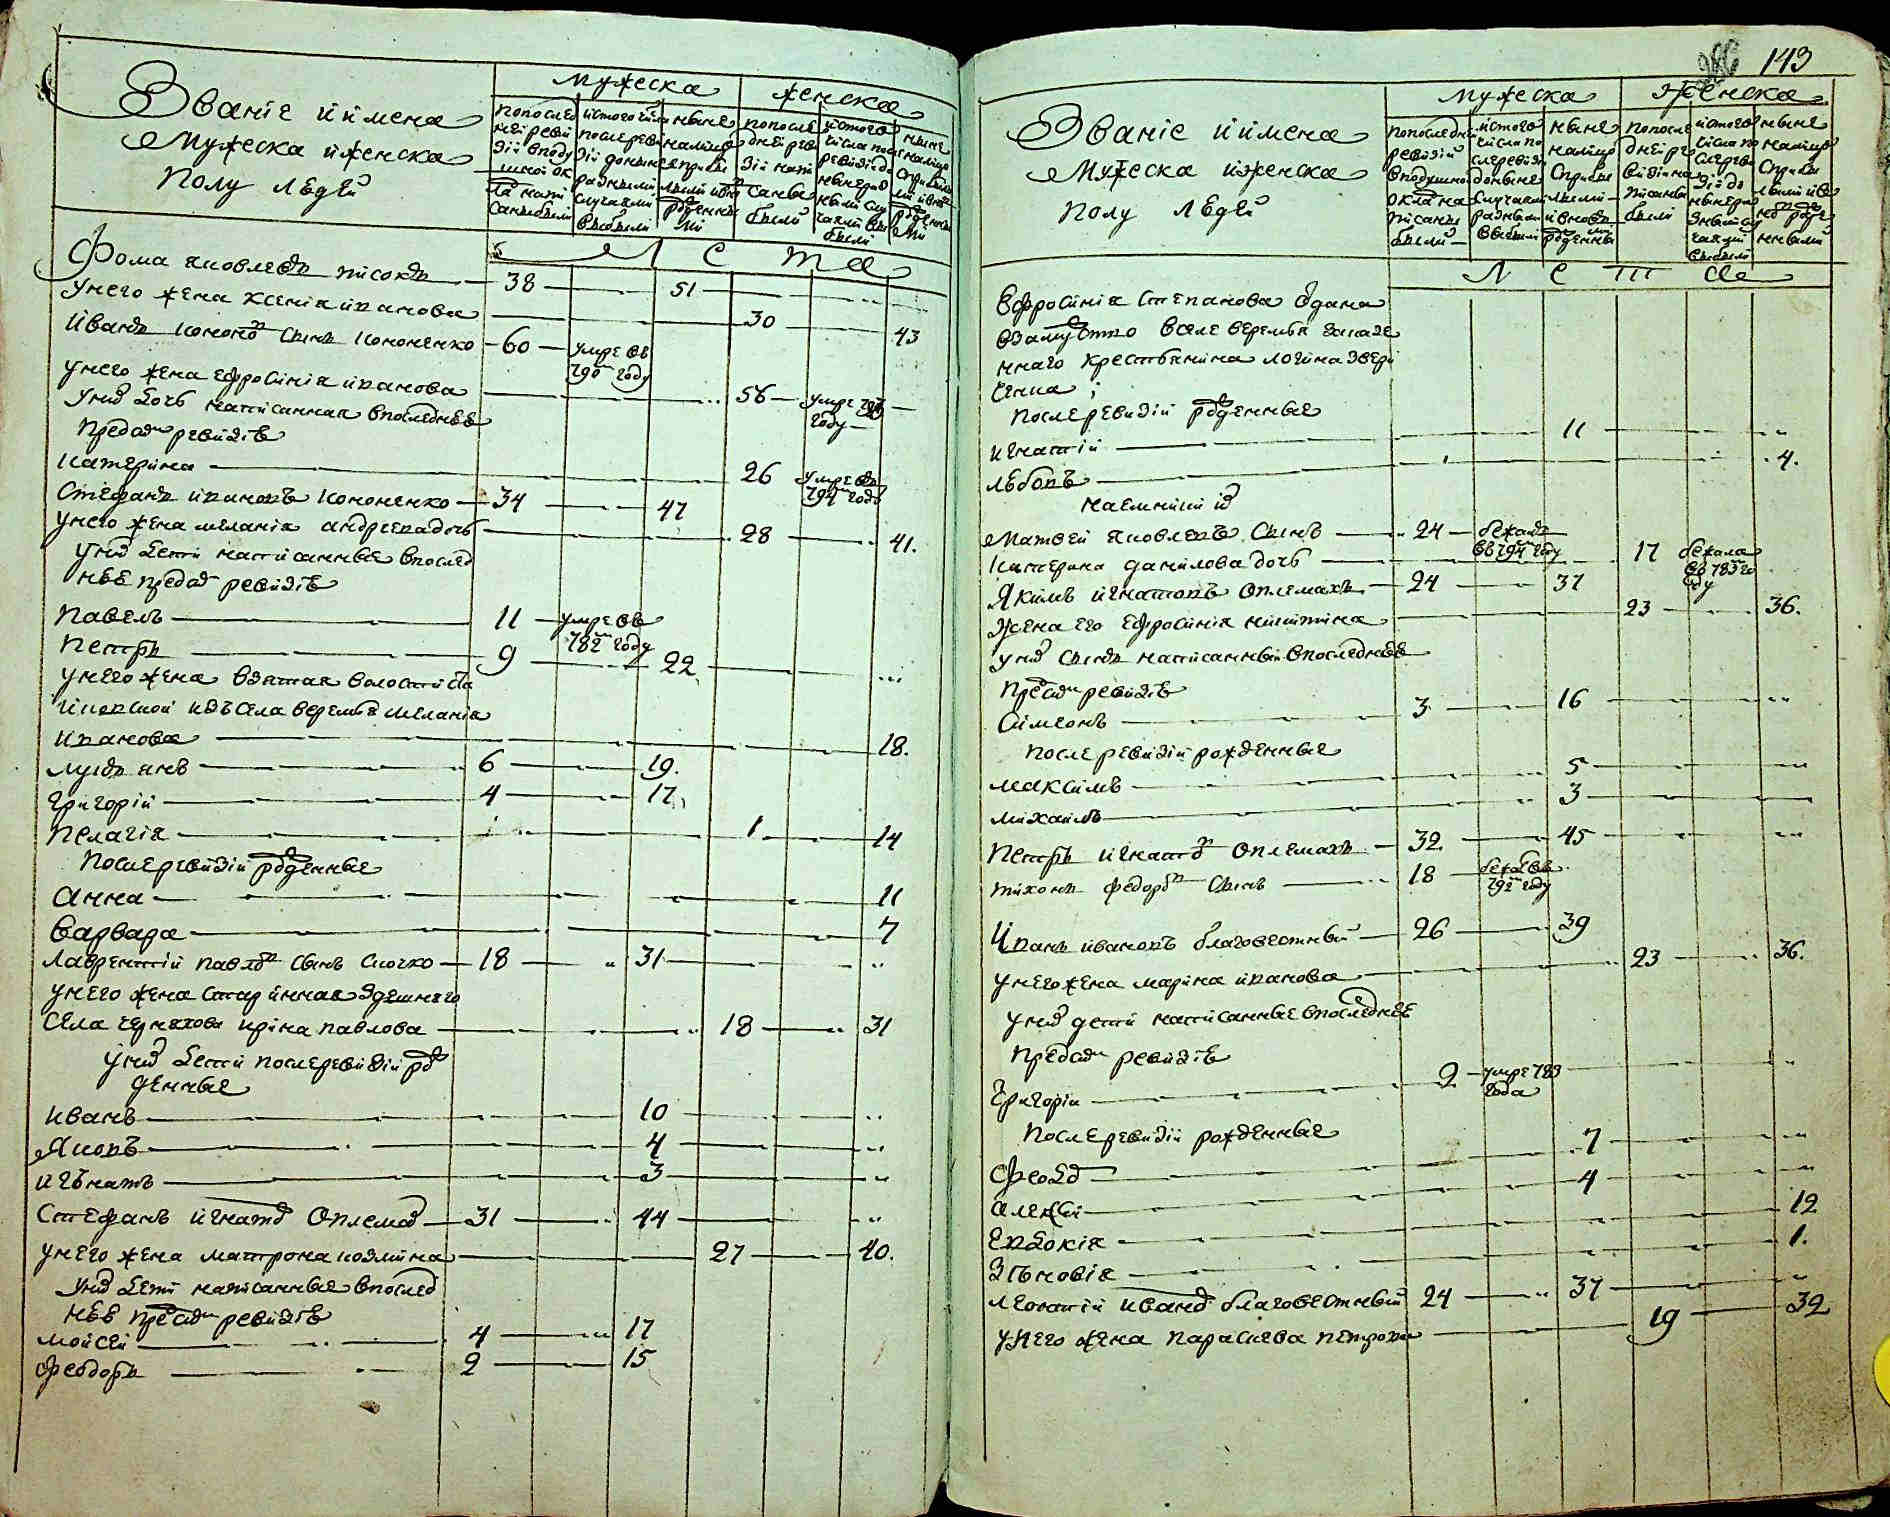 Званіе и имена
Мужеска и женска
полу людей
мужеска
женска
по последней ревизіи в подушной окладъ написаны были
из того числа после ревизіи до ныне разными случаями выбыли
ныне налицо с прибылыми и вновь рожденными
по последней ревизіи написаны были
из того числа после ревизіи до ныне разными случаями выбыли
ныне налицо с прибылыми и вновь рожденными
Л е т а
Фома яковлевъ писокъ 38 51
у него жена ксенія иванова 30 43
Иванъ кононовъ сынъ кононенко 60 умре въ 790м году
у него жена ефросинія иванова 56 умре году
у них дочь написанная в последнее
пред сим ревизіе
катерина 26 умре въ 794м году
Стефанъ ивановъ кононенко 34 47
у него жена меланія андреева дочь 28 41.
у них дети написанные в послед
нее пред сим ревизіе
павелъ 11 умре въ 782м году
петръ 9 22
у него жена взятая в волости
изъ села веремья меланія
иванова 18.
лукіянъ 6 19.
григорій 4 17
пелагія 1 14
после ревизіи рожденные
анна 11
варвара 7
лаврентій павловъ сынъ сиочко 18 31
у него жена старинная здешнего
села черняхова ирина павлова 18 31
у них дети после ревизіи рож
денные
иванъ 10
яковъ 4
игънатъ 3
стефанъ игнатов оплемах 31 44
у него жена матрона козмина 27 40.
у них дети написанные в послед
нее пред сим ревизіе
мойсей 4 17
феодоръ 2 15
143
Званіе и имена
Мужеска и женска
полу людей
мужеска
женска
по последней ревизіи в подушной оклад написаны были
из того числа после ревизіи до ныне случаями разными выбыли
ныне налицо с прибылыми и вновь рожденными
по последней ревизіи написаны были
из того числа после ревизіи до ныне разными случаями выбыли
ныне налицо с прибылыми и вновь рожденными
Л е т а
ефросинія степанова отдана
в замужство в селе веремья казе
ннаго крестьянина логина звери
после ревизіи рожденные
игнатій 11
любовь 4.
наемники их
матвей яковлевъ сынъ 24 бежалъ въ 794м году
катерина данилова дочь 17 бежала въ 783 го ду
Якимъ игнатовъ оплемахъ 24 37
жена его ефросинія никитина 23 36.
у них сынъ написанный в последнее
пред сим ревизіе
симеонъ 3 16
после ревизіи рожденные
максимъ 5
михаилъ 3
петръ игнатов оплемахъ 32. 45
тихонъ федоров сынъ 18 бежал въ 792м году
Иванъ ивановъ благовестный 26 39
у него жена марина иванова 23 36.
у них дети написанные в последнее
пред сим ревизіе
григоріи 2 умре 783 года
после ревизіи рожденные
феод 7
алексій 4
евдокія 12
зѣновія 1.
леонтій иванов благовестный 24 37
у него жена параскева петрова 19 32